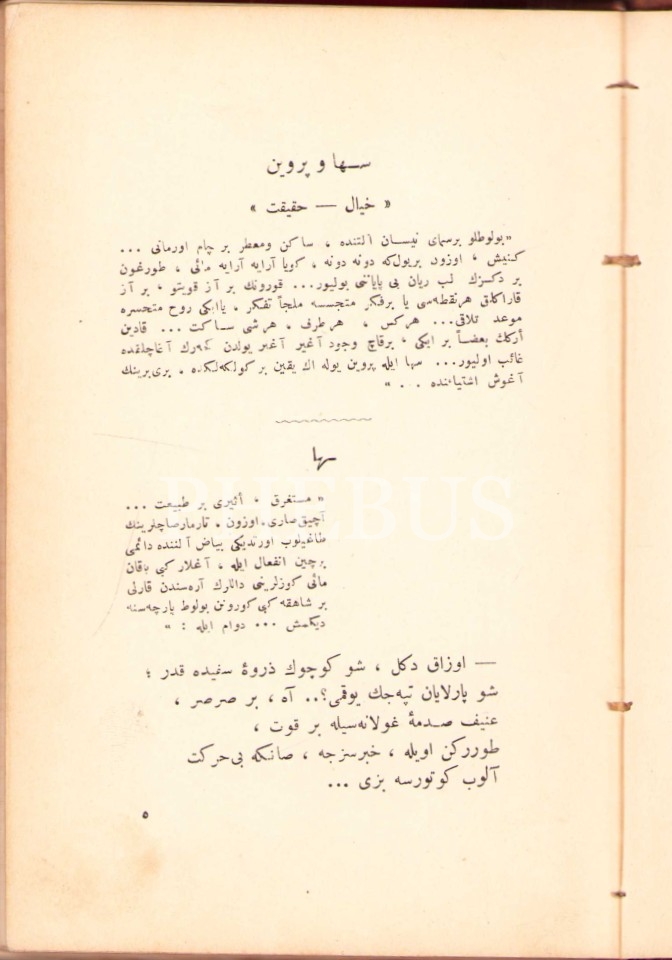 سها و پروین
« خیال — حقیقت »
« بولوطلو برسمای نیسان آلتنده ، ساکن ومعطر بر چام اورمانی ...
کنیش ، اوزون بریولکه دونه دونه ، کویا آرایه آرایه مائی ، طورغون
بر دکزک لب ریان بی پایاننی بولیور... قورونك بر آز قویتو ، بر آز
قارا کلق هرنقطه‌سی یا برفکر متجسسه ملجأ تفکر ، یاایکی روح متحسره
موعد تلاقی... هرکس ، هرطرف ، هرشی ساکت ... قادین
أرکك بعضاً بر ایکی ، برقاچ وجود آغیر آغیر یولدن کچه‌رك آغاچلقده
غائب اولیور... سها ایله پروین یوله اك یقین بر کولکه‌لکده ، بری‌برینك
آغوش اشتیاننده ... »
سها
« مستغرق ، أثیری بر طبیعت ...
آچیق صاری ، اوزون ، تارمار صاچلرینك
طاغیلوب اورتدیکی بیاض آلننده دائمی
برچین انفعال ایله ، آغلار کبی باقان
مائی کوزلرینی داللرك آره‌سندن قارلی
بر شاهقه کبی کورونن بولوط پارچه‌سنه
دیکمش ... دوام ایله : »
— اوزاق دکل ، شو کوچوك ذروۀ سفیده قدر ؛
شو پارلایان تپه‌جك یوقمی؟.. آه ، بر صرصر ،
عنیف صدمۀ غولانه‌سیله بر قوت ،
طوررکن اویله ، خبرسزجه ، صانکه بی‌حرکت
آلوب کوتورسه بزی ...
٥
PHEBUS